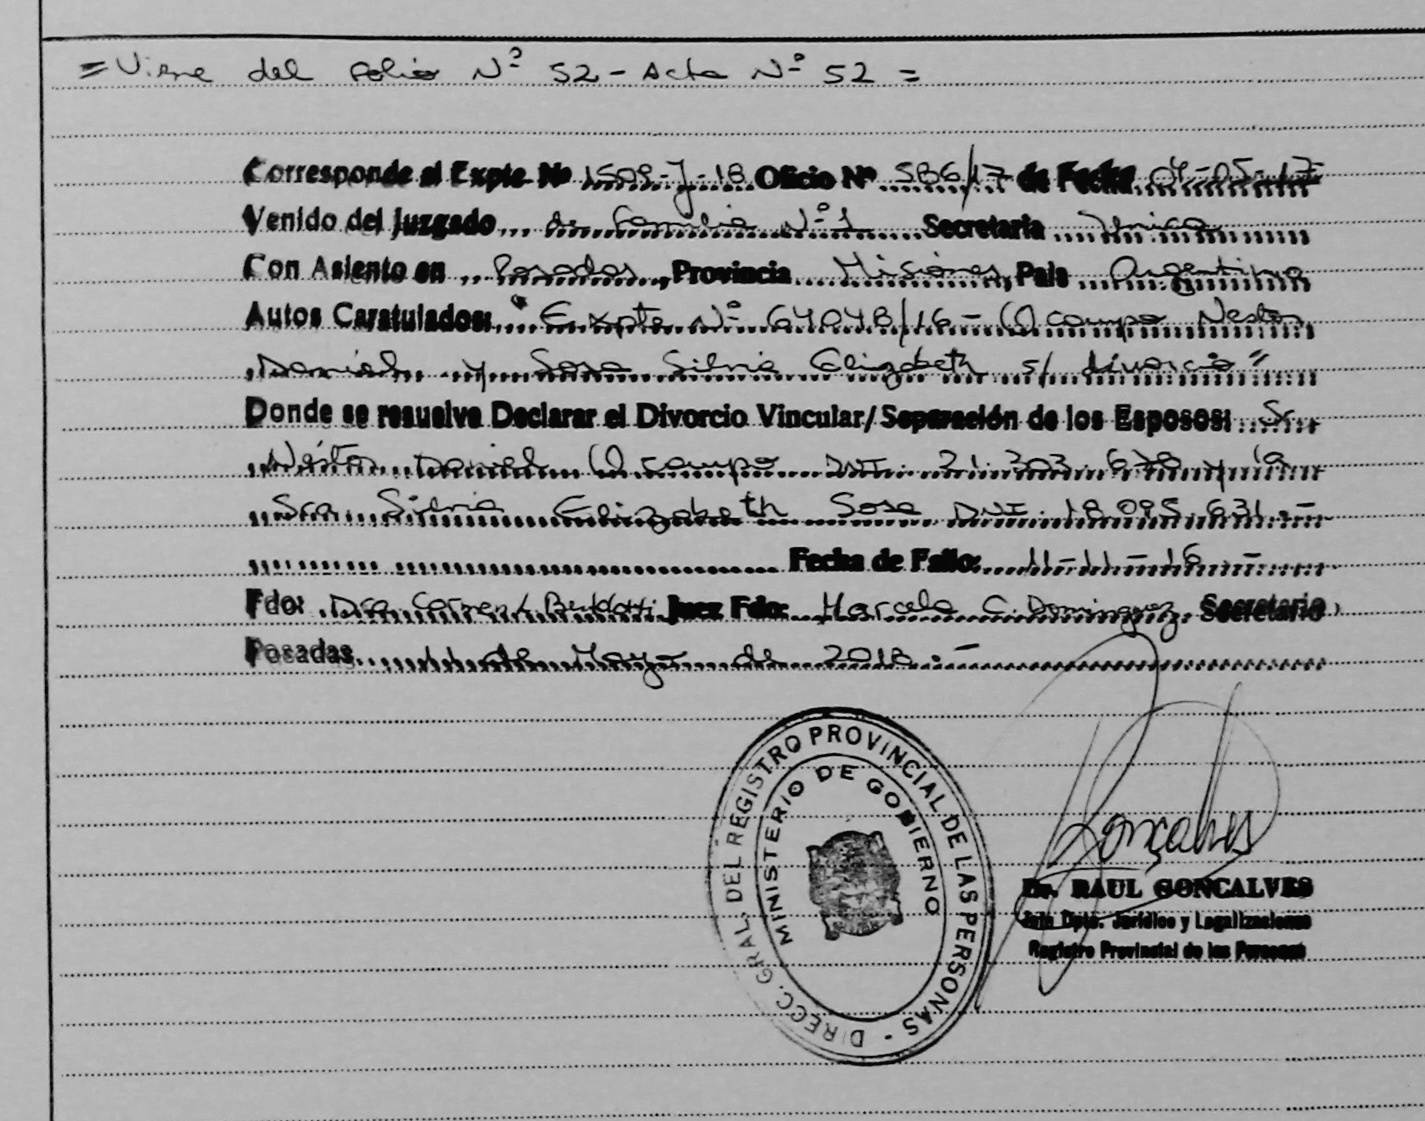 = Viene del folio Nº 52 - Acta Nº 52 =
Corresponde al Expte Nº 1509-J-18 Oficio Nº 586/17 de Fecha 04-05-17
Venido del Juzgado de Familia Nº 1 Secretaria Unica
Con Asiento en Posadas, Provincia Misiones, Pais Argentina
Autos Caratulados: "Expte Nº 64048/16 - Ocampo Nestor
Daniel y Sosa Silvia Elizabeth s/ divorcio"
Donde se resuelve Declarar el Divorcio Vincular/Separación de los Esposos: Sr
Néstor Daniel Ocampo DNI. 21.303.678 y la
Sra Silvia Elizabeth Sosa DNI 18.095.631.-
Fecha de Fallo: 11-11-16.-
Fdo: Dra Juez Fdo: Marcela C. Dominguez Secretario
Posadas 11 de Mayo de 2018.-
DIRECC. GRAL. DEL REGISTRO PROVINCIAL DE LAS PERSONAS -
MINISTERIO DE GOBIERNO
Gonçalves
Dr. RAUL GONCALVES
Jefe Dpto. Jurídico y Legalizaciones
Registro Provincial de las Personas